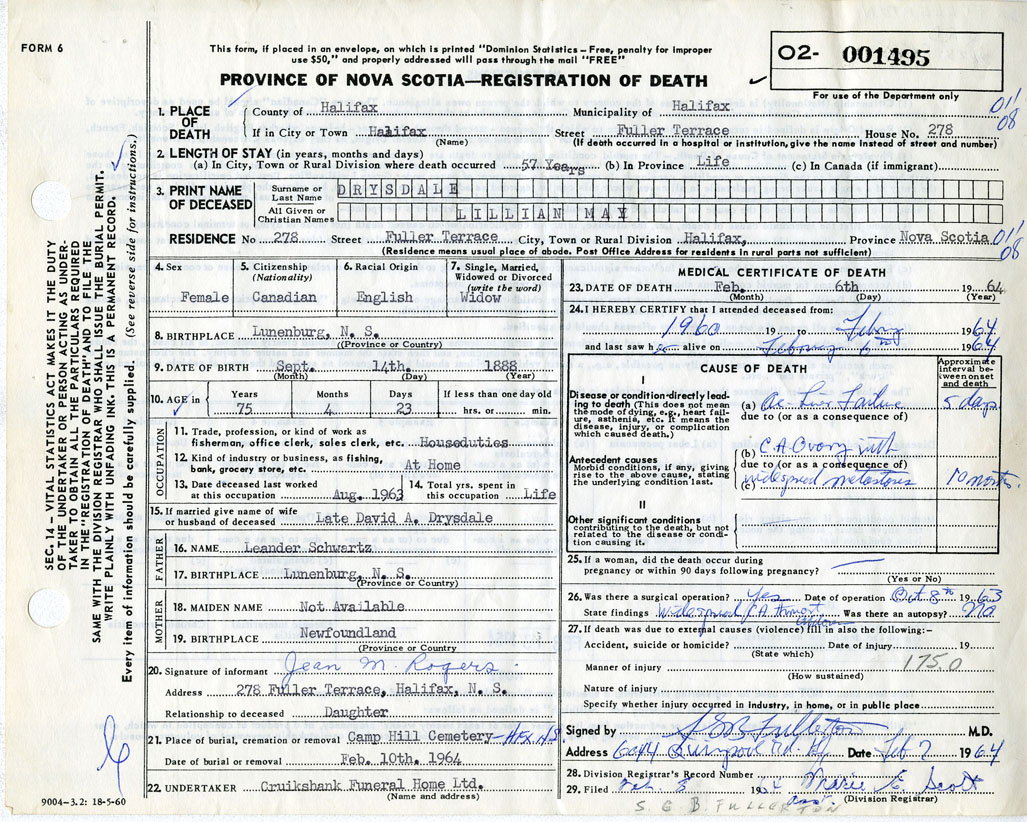 FORM 6
This form, if placed in an envelope, on which is printed "Dominion Statistics – Free, penalty for improper
use $50," and properly addressed will pass through the mail "FREE"
PROVINCE OF NOVA SCOTIA—REGISTRATION OF DEATH
02- 001495
For use of the Department only
011
08
1. PLACE OF DEATH
County of Halifax Municipality of Halifax
If in City or Town Halifax Street Fuller Terrace House No. 278
(Name) (If death occurred in a hospital or institution, give the name instead of street and number)
2. LENGTH OF STAY (in years, months and days)
(a) In City, Town or Rural Division where death occurred 57 Years (b) In Province Life (c) In Canada (if immigrant)
3. PRINT NAME OF DECEASED
Surname or Last Name DRYSDALE
All Given or Christian Names LILLIAN MAY
RESIDENCE No 278 Street Fuller Terrace City, Town or Rural Division Halifax, Province Nova Scotia
011
08
(Residence means usual place of abode. Post Office Address for residents in rural parts not sufficient)
4. Sex
Female
5. Citizenship
(Nationality)
Canadian
6. Racial Origin
English
7. Single, Married,
Widowed or Divorced
(write the word)
Widow
8. BIRTHPLACE Lunenburg, N. S.
(Province or Country)
9. DATE OF BIRTH Sept. 14th. 1888
(Month) (Day) (Year)
10. AGE in
Years Months Days If less than one day old
75 4 23 hrs. or min.
OCCUPATION
11. Trade, profession, or kind of work as
fisherman, office clerk, sales clerk, etc. Houseduties
12. Kind of industry or business, as fishing,
bank, grocery store, etc. At Home
13. Date deceased last worked
at this occupation Aug. 1963
14. Total yrs. spent in
this occupation Life
15. If married give name of wife
or husband of deceased Late David A. Drysdale
FATHER
16. NAME Leander Schwartz
17. BIRTHPLACE Lunenburg, N. S.
(Province or Country)
MOTHER
18. MAIDEN NAME Not Available
19. BIRTHPLACE Newfoundland
(Province or Country)
20. Signature of informant Jean M. Rogers
Address 278 Fuller Terrace, Halifax, N. S.
Relationship to deceased Daughter
21. Place of burial, cremation or removal Camp Hill Cemetery - HFX NS
Date of burial or removal Feb. 10th. 1964
22. UNDERTAKER Cruikshank Funeral Home Ltd.
(Name and address)
9004–3.2: 18-5-60
MEDICAL CERTIFICATE OF DEATH
23. DATE OF DEATH Feb. 6th 1964
(Month) (Day) (Year)
24. I HEREBY CERTIFY that I attended deceased from:
1960 19 to 1964
and last saw h alive on February 6th 1964
CAUSE OF DEATH
Approximate
interval between onset
and death
I
Disease or condition directly leading to death (This does not mean
the mode of dying, e.g., heart failure, asthenia, etc. It means the
disease, injury, or complication
which caused death.)
(a) Failure 5 days
due to (or as a consequence of)
Antecedent causes
Morbid conditions, if any, giving
rise to the above cause, stating
the underlying condition last.
(b) C.A. Ovary with
due to (or as a consequence of)
(c) widespread metastases 10 months.
II
Other significant conditions
contributing to the death, but not
related to the disease or condition causing it.
25. If a woman, did the death occur during
pregnancy or within 90 days following pregnancy?
(Yes or No)
26. Was there a surgical operation? Yes Date of operation Oct 8th 1963
State findings Widespread C.A. Was there an autopsy? No
27. If death was due to external causes (violence) fill in also the following:–
Accident, suicide or homicide? Date of injury 19
(State which)
Manner of injury 1750
(How sustained)
Nature of injury
Specify whether injury occurred in industry, in home, or in public place
Signed by S G B Fullerton M.D.
Address Date Feb 7 1964
28. Division Registrar's Record Number
29. Filed 19 Marie E. Scott
(Division Registrar)
S. G. B. FULLERTON
SEC. 14 – VITAL STATISTICS ACT MAKES IT THE DUTY
OF THE UNDERTAKER OR PERSON ACTING AS UNDERTAKER TO OBTAIN ALL THE PARTICULARS REQUIRED
IN THE "REGISTRATION OF DEATH" AND TO FILE THE
SAME WITH THE DIVISION REGISTRAR WHO SHALL ISSUE THE BURIAL PERMIT.
WRITE PLAINLY WITH UNFADING INK. THIS IS A PERMANENT RECORD.
Every item of information should be carefully supplied. (See reverse side for instructions.)